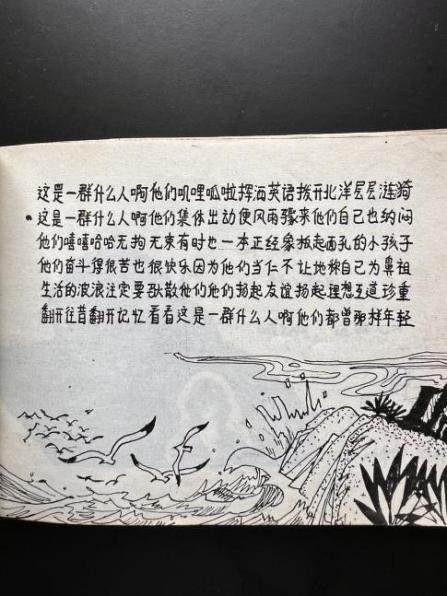 这是一群什么人啊他们叽哩呱啦挥洒英语拨开北洋层层涟漪
这是一群什么人啊他们集体出动便风雨骤来他们自己也纳闷
他们嘻嘻哈哈无拘无束有时也一本正经象板起面孔的小孩子
他们奋斗得很苦也很快乐因为他们当仁不让地称自己为鼻祖
生活的波浪注定要驱散他们他们扬起友谊扬起理想互道珍重
翻开往昔翻开记忆看看这是一群什么人啊他们都曾那样年轻